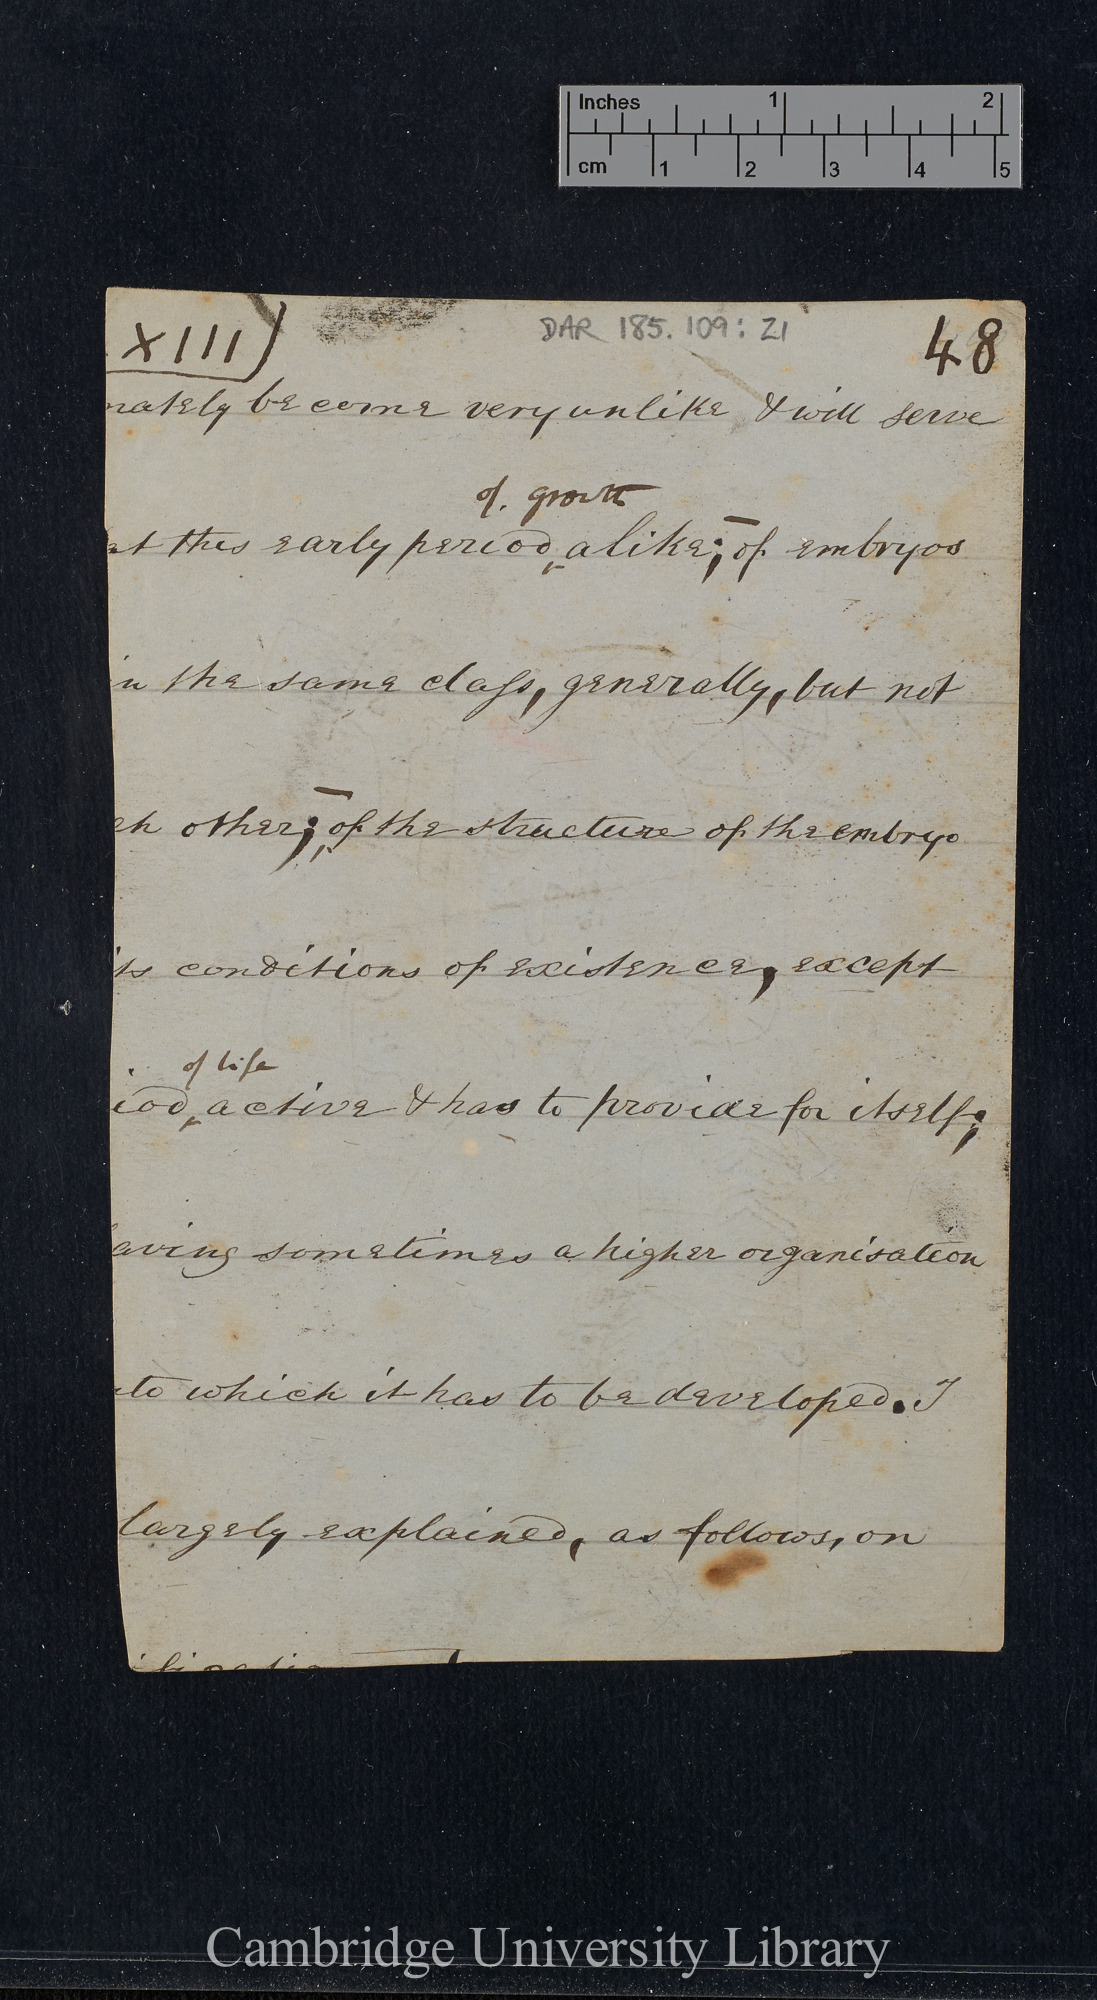 Inches 1 2
cm 1 2 3 4 5
XIII) DAR 185.109: Z1 48
nately become very unlike & will serve
of growth
at this early period, alike; – of embryos
in the same class, generally, but not
ch other; – of the structure of the embryo
its conditions of existence, except
of life
iod, active & has to provide for itself;
aving sometimes a higher organisation
to which it has to be developed. I
largely explained, as follows, on
Cambridge University Library